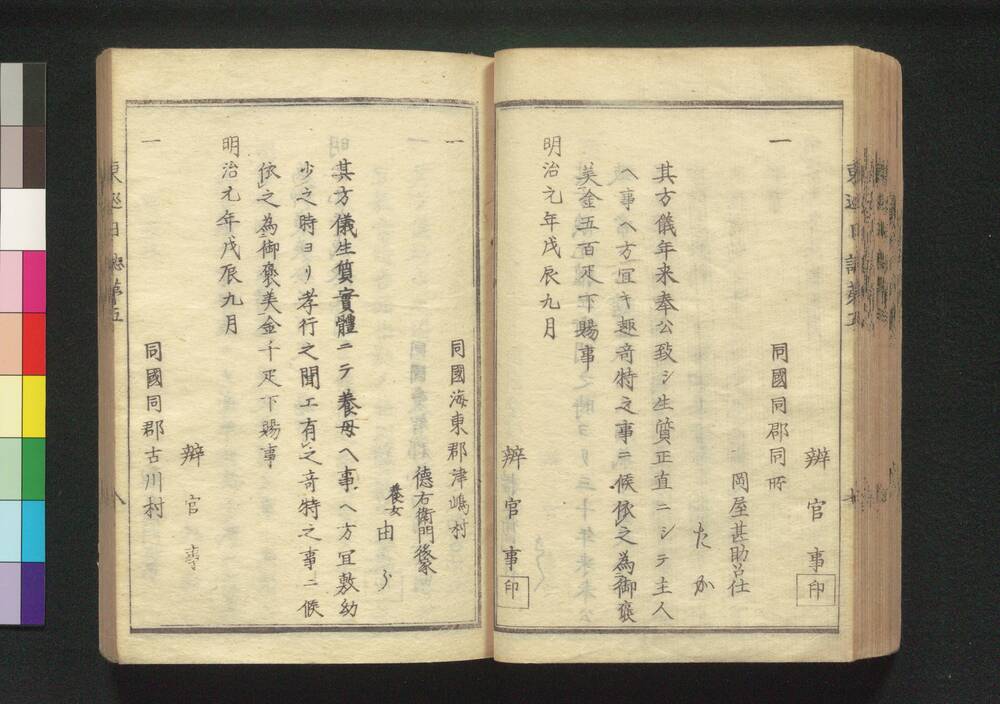 辨官事印
一
同國同郡同所
岡屋甚助召仕
たか
其方儀年来奉公致シ生質正直ニシテ主人
ヘ事ヘ方宜キ趣竒特之事ニ候依之為御褒
美金五百疋下賜事
明治元年戊辰九月
辨官事印
一
同國海東郡津嶋村
德右衛門後家
養女
由う
其方儀生質實體ニテ養母ヘ事ヘ方宜敷幼
少之時ヨリ孝行之聞エ有之竒特之事ニ候
依之為御褒美金千疋下賜事
明治元年戊辰九月
辨官事
一
同國同郡古川村
東巡日誌第五